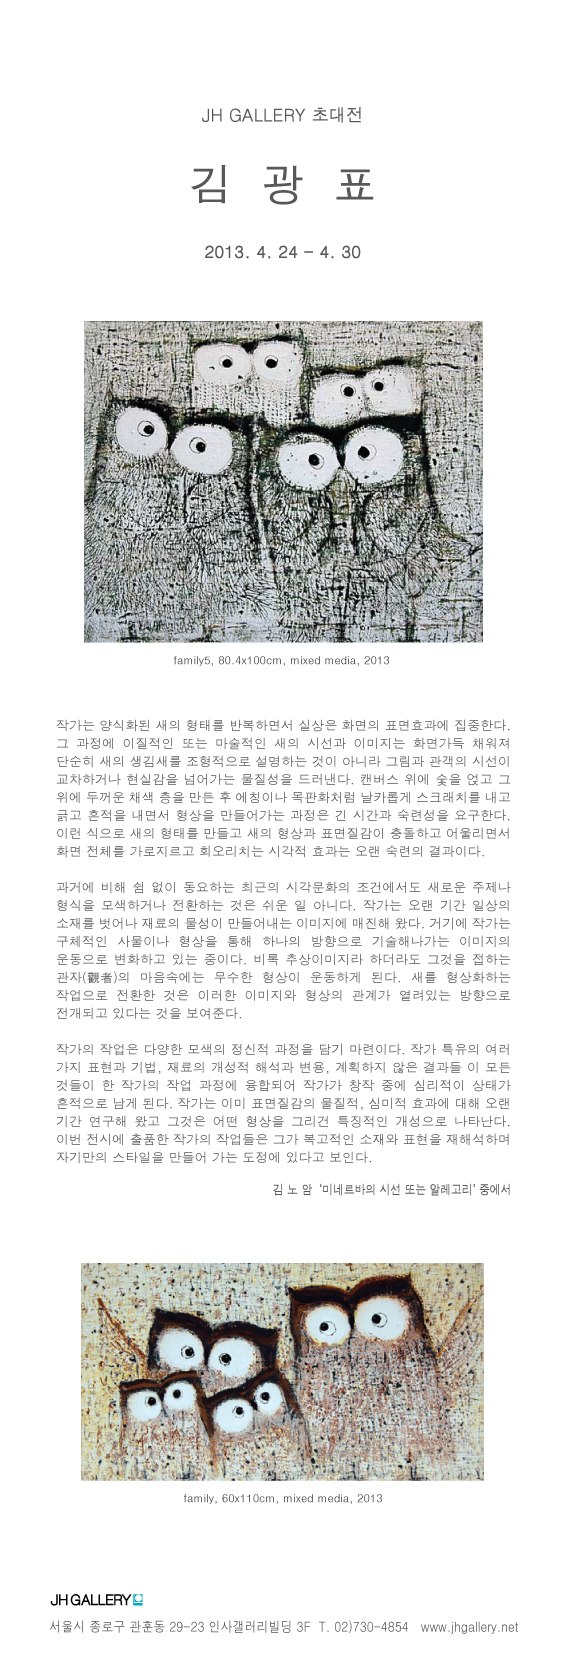 JH GALLERY 초대전
김 광 표
2013. 4. 24 - 4. 30
family5, 80.4x100cm, mixed media, 2013
작가는 양식화된 새의 형태를 반복하면서 실상은 화면의 표면효과에 집중한다.
그 과정에 이질적인 또는 마술적인 새의 시선과 이미지는 화면가득 채워져
단순히 새의 생김새를 조형적으로 설명하는 것이 아니라 그림과 관객의 시선이
교차하거나 현실감을 넘어가는 물질성을 드러낸다. 캔버스 위에 숯을 얹고 그
위에 두꺼운 채색 층을 만든 후 에칭이나 목판화처럼 날카롭게 스크래치를 내고
긁고 흔적을 내면서 형상을 만들어가는 과정은 긴 시간과 숙련성을 요구한다.
이런 식으로 새의 형태를 만들고 새의 형상과 표면질감이 충돌하고 어울리면서
화면 전체를 가로지르고 회오리치는 시각적 효과는 오랜 숙련의 결과이다.
과거에 비해 쉼 없이 동요하는 최근의 시각문화의 조건에서도 새로운 주제나
형식을 모색하거나 전환하는 것은 쉬운 일 아니다. 작가는 오랜 기간 일상의
소재를 벗어나 재료의 물성이 만들어내는 이미지에 매진해 왔다. 거기에 작가는
구체적인 사물이나 형상을 통해 하나의 방향으로 기술해나가는 이미지의
운동으로 변화하고 있는 중이다. 비록 추상이미지라 하더라도 그것을 접하는
관자(觀者)의 마음속에는 무수한 형상이 운동하게 된다. 새를 형상화하는
작업으로 전환한 것은 이러한 이미지와 형상의 관계가 열려있는 방향으로
전개되고 있다는 것을 보여준다.
작가의 작업은 다양한 모색의 정신적 과정을 담기 마련이다. 작가 특유의 여러
가지 표현과 기법, 재료의 개성적 해석과 변용, 계획하지 않은 결과들 이 모든
것들이 한 작가의 작업 과정에 융합되어 작가가 창작 중에 심리적이 상태가
흔적으로 남게 된다. 작가는 이미 표면질감의 물질적, 심미적 효과에 대해 오랜
기간 연구해 왔고 그것은 어떤 형상을 그리건 특징적인 개성으로 나타난다.
이번 전시에 출품한 작가의 작업들은 그가 복고적인 소재와 표현을 재해석하며
자기만의 스타일을 만들어 가는 도정에 있다고 보인다.
김 노 암 '미네르바의 시선 또는 알레고리' 중에서
family, 60x110cm, mixed media, 2013
JH GALLERY
서울시 종로구 관훈동 29-23 인사갤러리빌딩 3F T. 02)730-4854 www.jhgallery.net